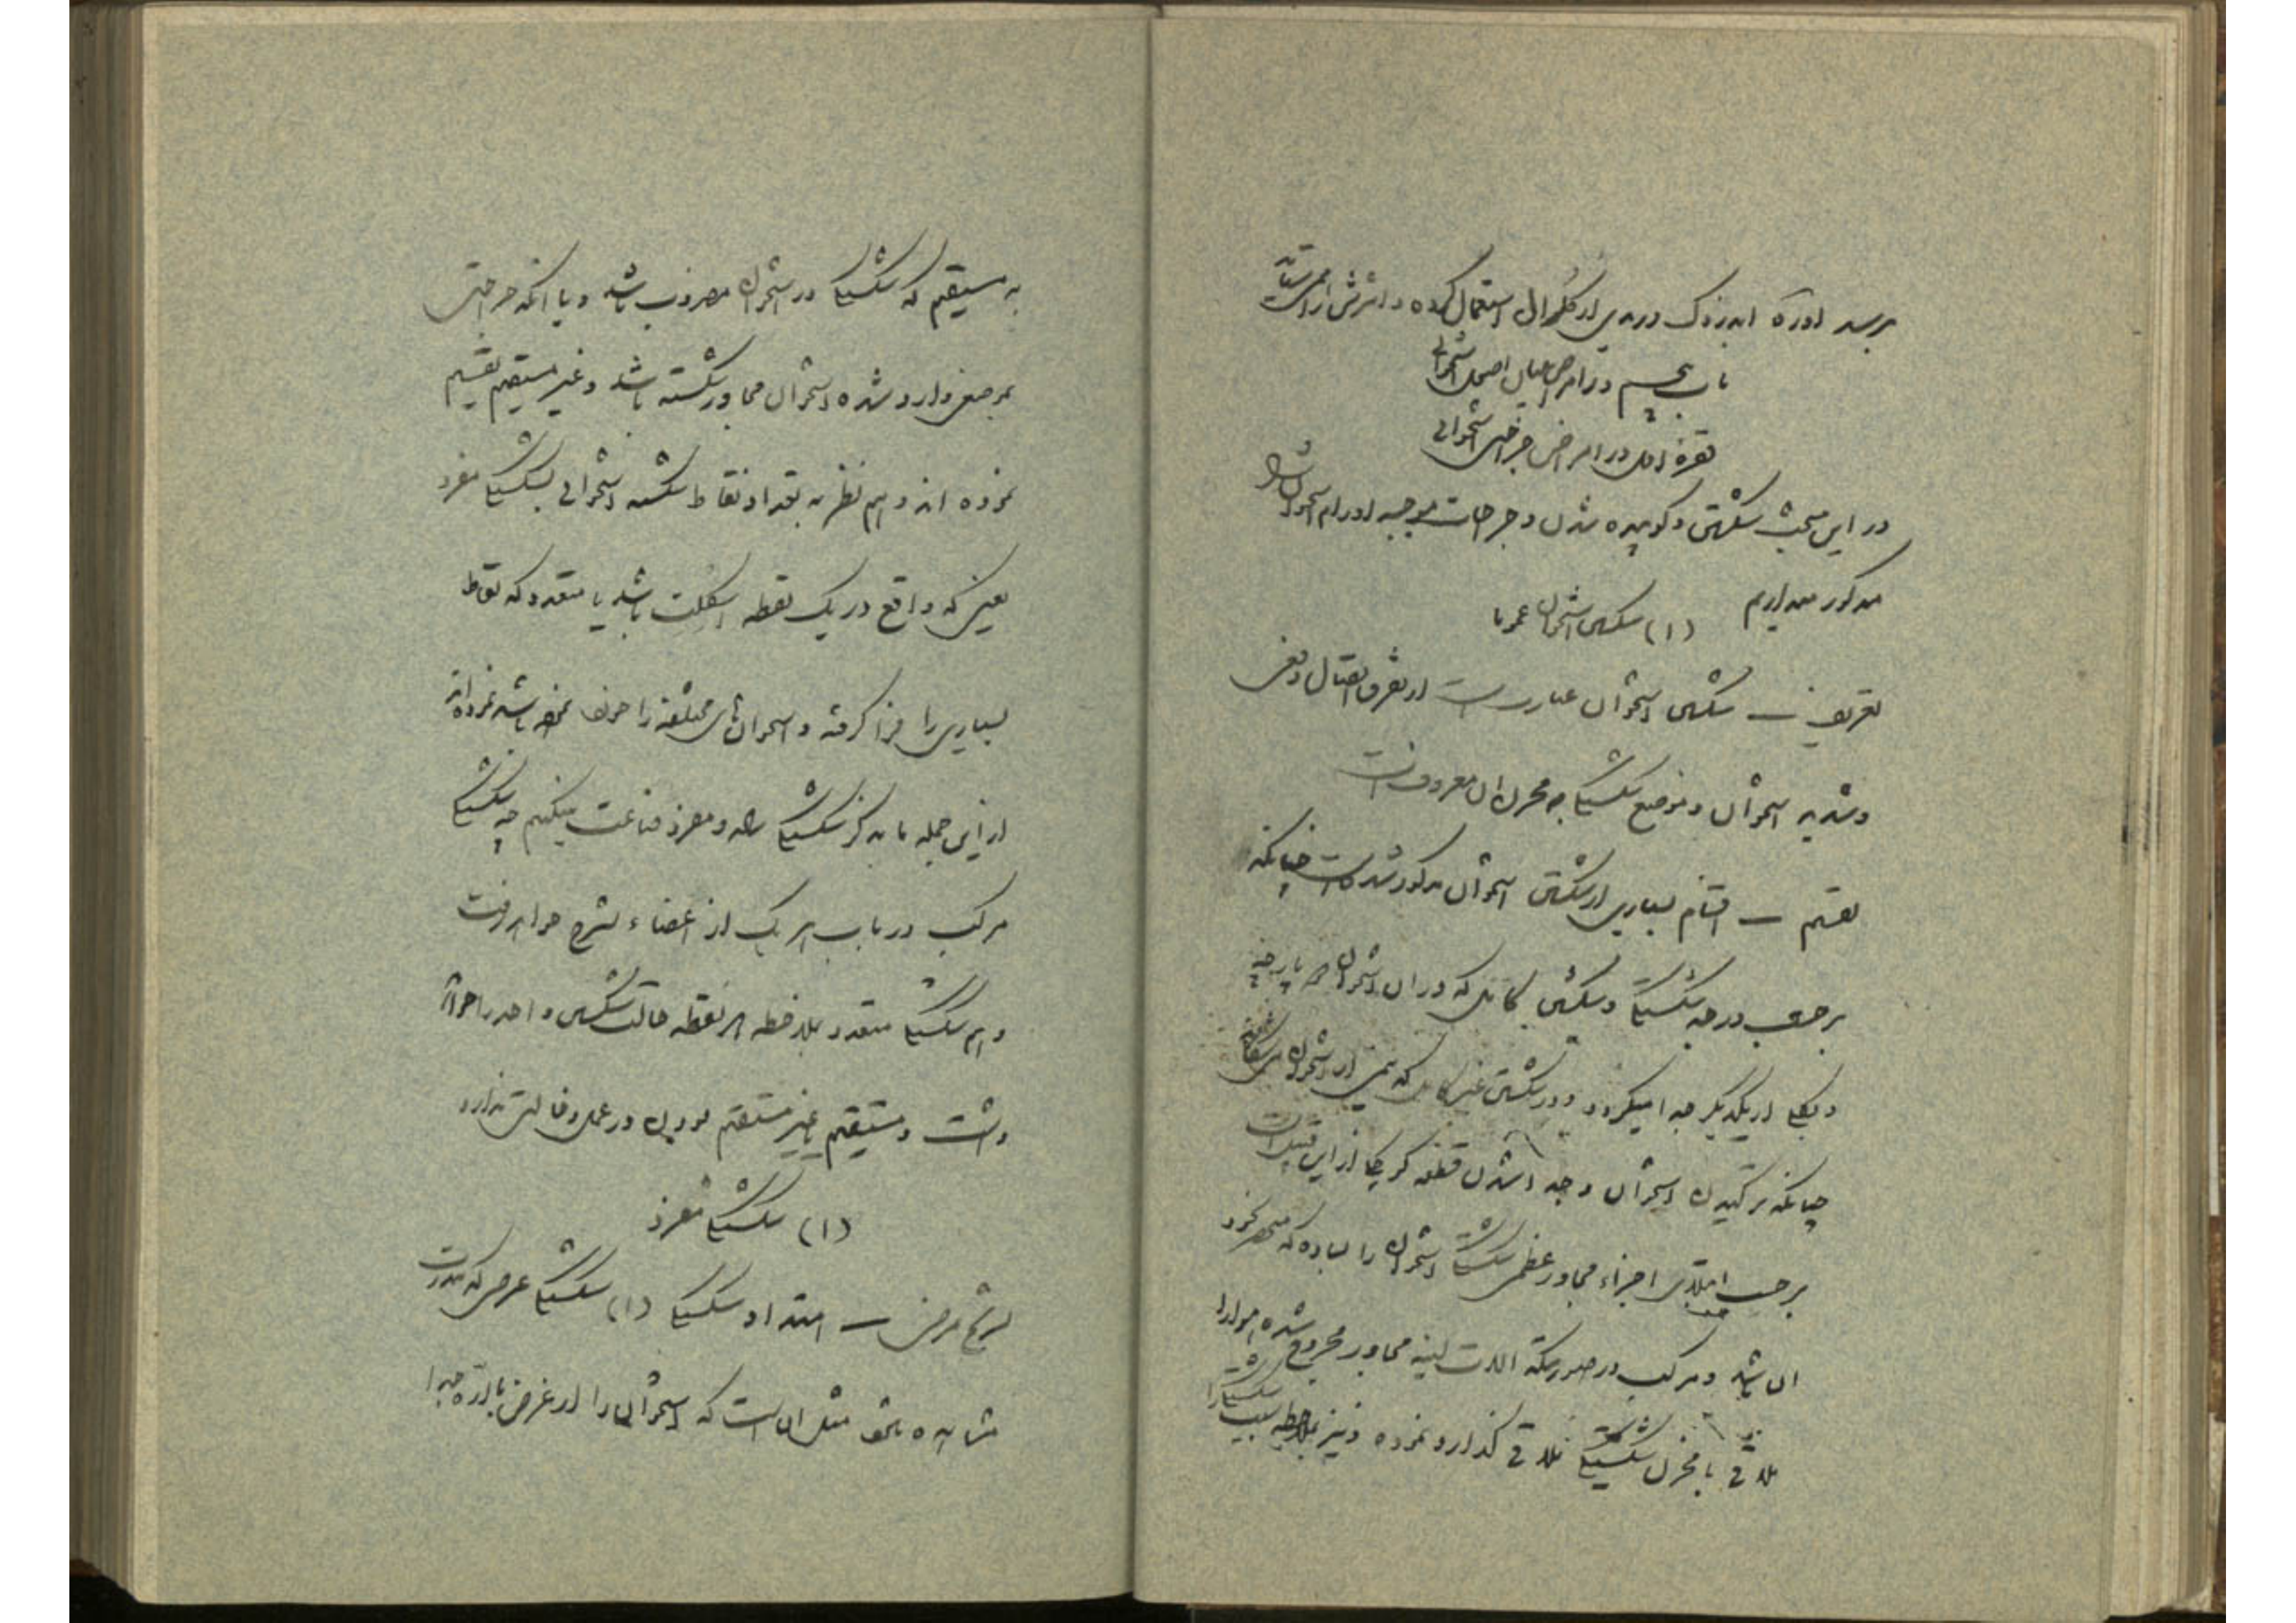 برسد اوره اندروک دریدی از کلرال استعمال کرده و اثرش را
باب پنجم در امراض
فقره اول در امراض جراحی استخوانی
در این مبحث شکستن و کوبیده شدن و جراحات موجبه اورام استخوان
مذکور میداریم (۱) شکستن استخوان عموما
تعریف ـ شکستن استخوان عبارتست از تفرق اتصال دفعی
و شدید استخوان و موضع شکستگی به مخزن آن معروفست
تقسیم ـ اقسام بسیاری از شکستن استخوان مذکور شده است چنانکه
برحسب درجه شکستگی و شکستن کامل که در آن استخوان دو پارچه
و بکلی از یکدیگر جدا میگردد و در شکستن غیر کامل که نیمی از استخوان
چنانکه ترکیدن استخوان و جدا شدن قطعه کوچکی از این قبیل است
برحسب ابتلای اجزاء مجاور عظم شکستگی استخوان را ساده که منحصر بخود
آن باشد و مرکب در صورتیکه آلات لینه مجاور مجروح شده هوا را
تلاقی با مخزن شکستگی تلاقی گذارد نموده و نیز بملاحظه سبب شکستگی را
به مستقیم که شکستگی در استخوان مضروب باشد و یا آنکه جراحتی
بموضعی وارد شده استخوان مجاور شکسته باشد و غیر مستقیم تقسیم
نموده اند و هم نظر به تعداد نقاط شکسته استخوانی بشکستگی مفرد
یعنی که واقع در یک نقطه اسکلت باشد یا متعدد که نقاط
بسیاری را فرا گرفته و استخوان‌های مختلفه را نموده باشد نموده‌اند
از این جمله ما بذکر شکستگی ساده و مفرد قناعت میکنیم چه شکستگی
مرکب در باب هر یک از اعضاء بشرح خواهد رفت
و هم شکستگی متعدد بملاحظه هر نقطه حالت شکستن واحد را خواهد
داشت و مستقیم یا غیر مستقیم بودن در عمل دخالتی ندارد
(۱) شکستگی مفرد
تشریح مرض ـ امتداد شکستگی (۱) شکستگی عرضی که بندرت
مشاهده میشود مثل آن است که استخوانی را از عرض با اره جدا